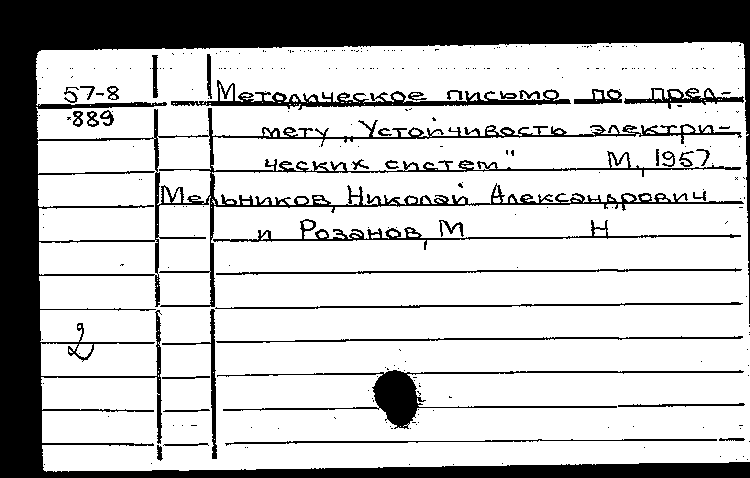 57-8 Методическое письмо по пред-
889 мету „Устойчивость электри-
ческих систем". М., 1957.
Мельников, Николай Александрович
и Розанов, М Н
2